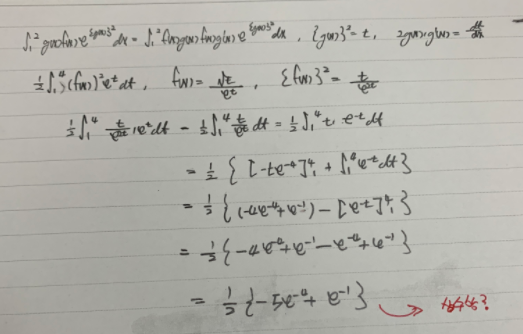 ∫₁² g(x)f(x)e^{{g(x)}²}dx = ∫₁² f(x)g(x)f(x)g'(x)e^{{g(x)}²}dx, {g(x)}² = t, 2g(x)g'(x) = dt/dx
½∫₁⁴ {f(x)}²e^t dt, f(x) = √t/e^t, {f(x)}² = t/e^{2t}
½∫₁⁴ t/e^{2t} · e^t dt - ½∫₁⁴ t/e^t dt = ½∫₁⁴ t · e^{-t}dt
= ½ { [-te^{-t}]₁⁴ + ∫₁⁴ e^{-t}dt }
= ½ { (-4e^{-4}+e^{-1}) - [e^{-t}]₁⁴ }
= ½ { -4e^{-4}+e^{-1}-e^{-4}+e^{-1} }
= ½ { -5e^{-4}+ e^{-1} }